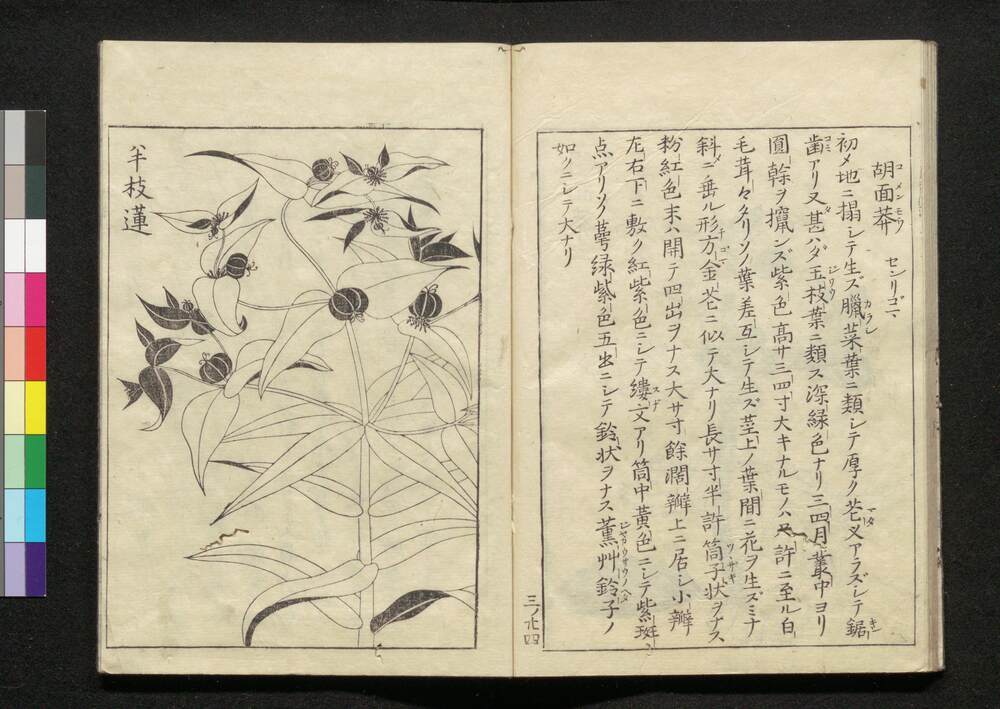 胡面莽 センリゴマ
コメンモウ
初メ地ニ搨シテ生ズ臘菜葉ニ類シテ厚ク芒叉アラズシテ鋸
歯アリ又甚ハダ玉枝葉ニ類ス深緑色ナリ三四月叢中ヨリ
圓幹ヲ擢ンズ紫色高サ三四寸大キナルモノハ尺許ニ至ル白
毛茸々タリソノ葉差互シテ生ズ莖上ノ葉間ニ花ヲ生ズミナ
斜ニ垂ル形方金芒ニ似テ大ナリ長サ寸半許筒子状ヲナス
粉紅色末ハ開テ四出ヲナス大サ寸餘濶瓣上ニ居シ小瓣
左右下ニ敷ク紅紫色ニシテ縷文アリ筒中黄色ニシテ紫斑
点アリソノ萼緑紫色五出ニシテ鈴状ヲナス薫艸鈴子ノ
如クニシテ大ナリ
三ノ廿四
半枝蓮